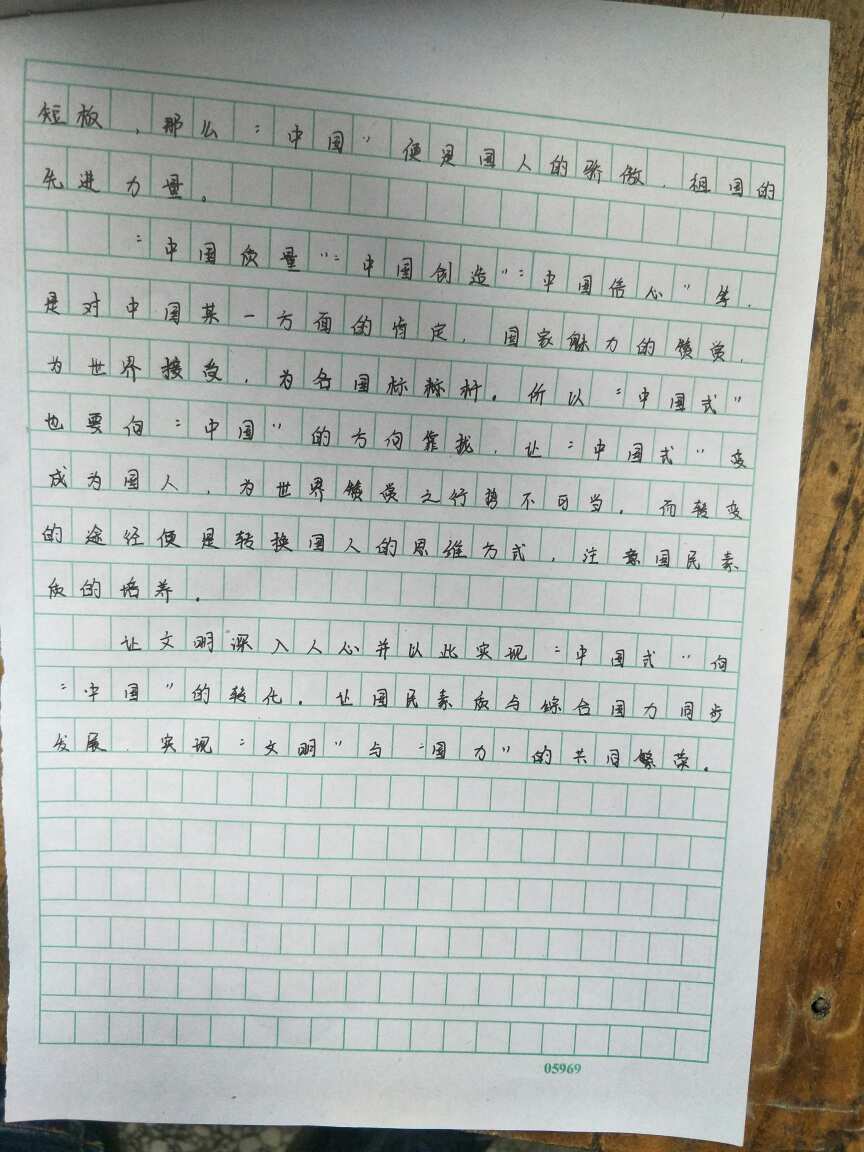 短板，那么“中国”便是国人的骄傲，祖国的
先进力量。
“中国质量”“中国创造”“中国信心”等，
是对中国某一方面的肯定，国家魅力的赞赏，
为世界接受，为各国标榜。所以“中国式”
也要向“中国”的方向靠拢，让“中国式”变
成为国人，为世界赞赏之行势不可当。而转变
的途径便是转换国人的思维方式，注意国民素
质的培养。
让文明深入人心并以此实现“中国式”向
“中国”的转化。让国民素质与综合国力同步
发展，实现“文明”与“国力”的共同繁荣。
05969